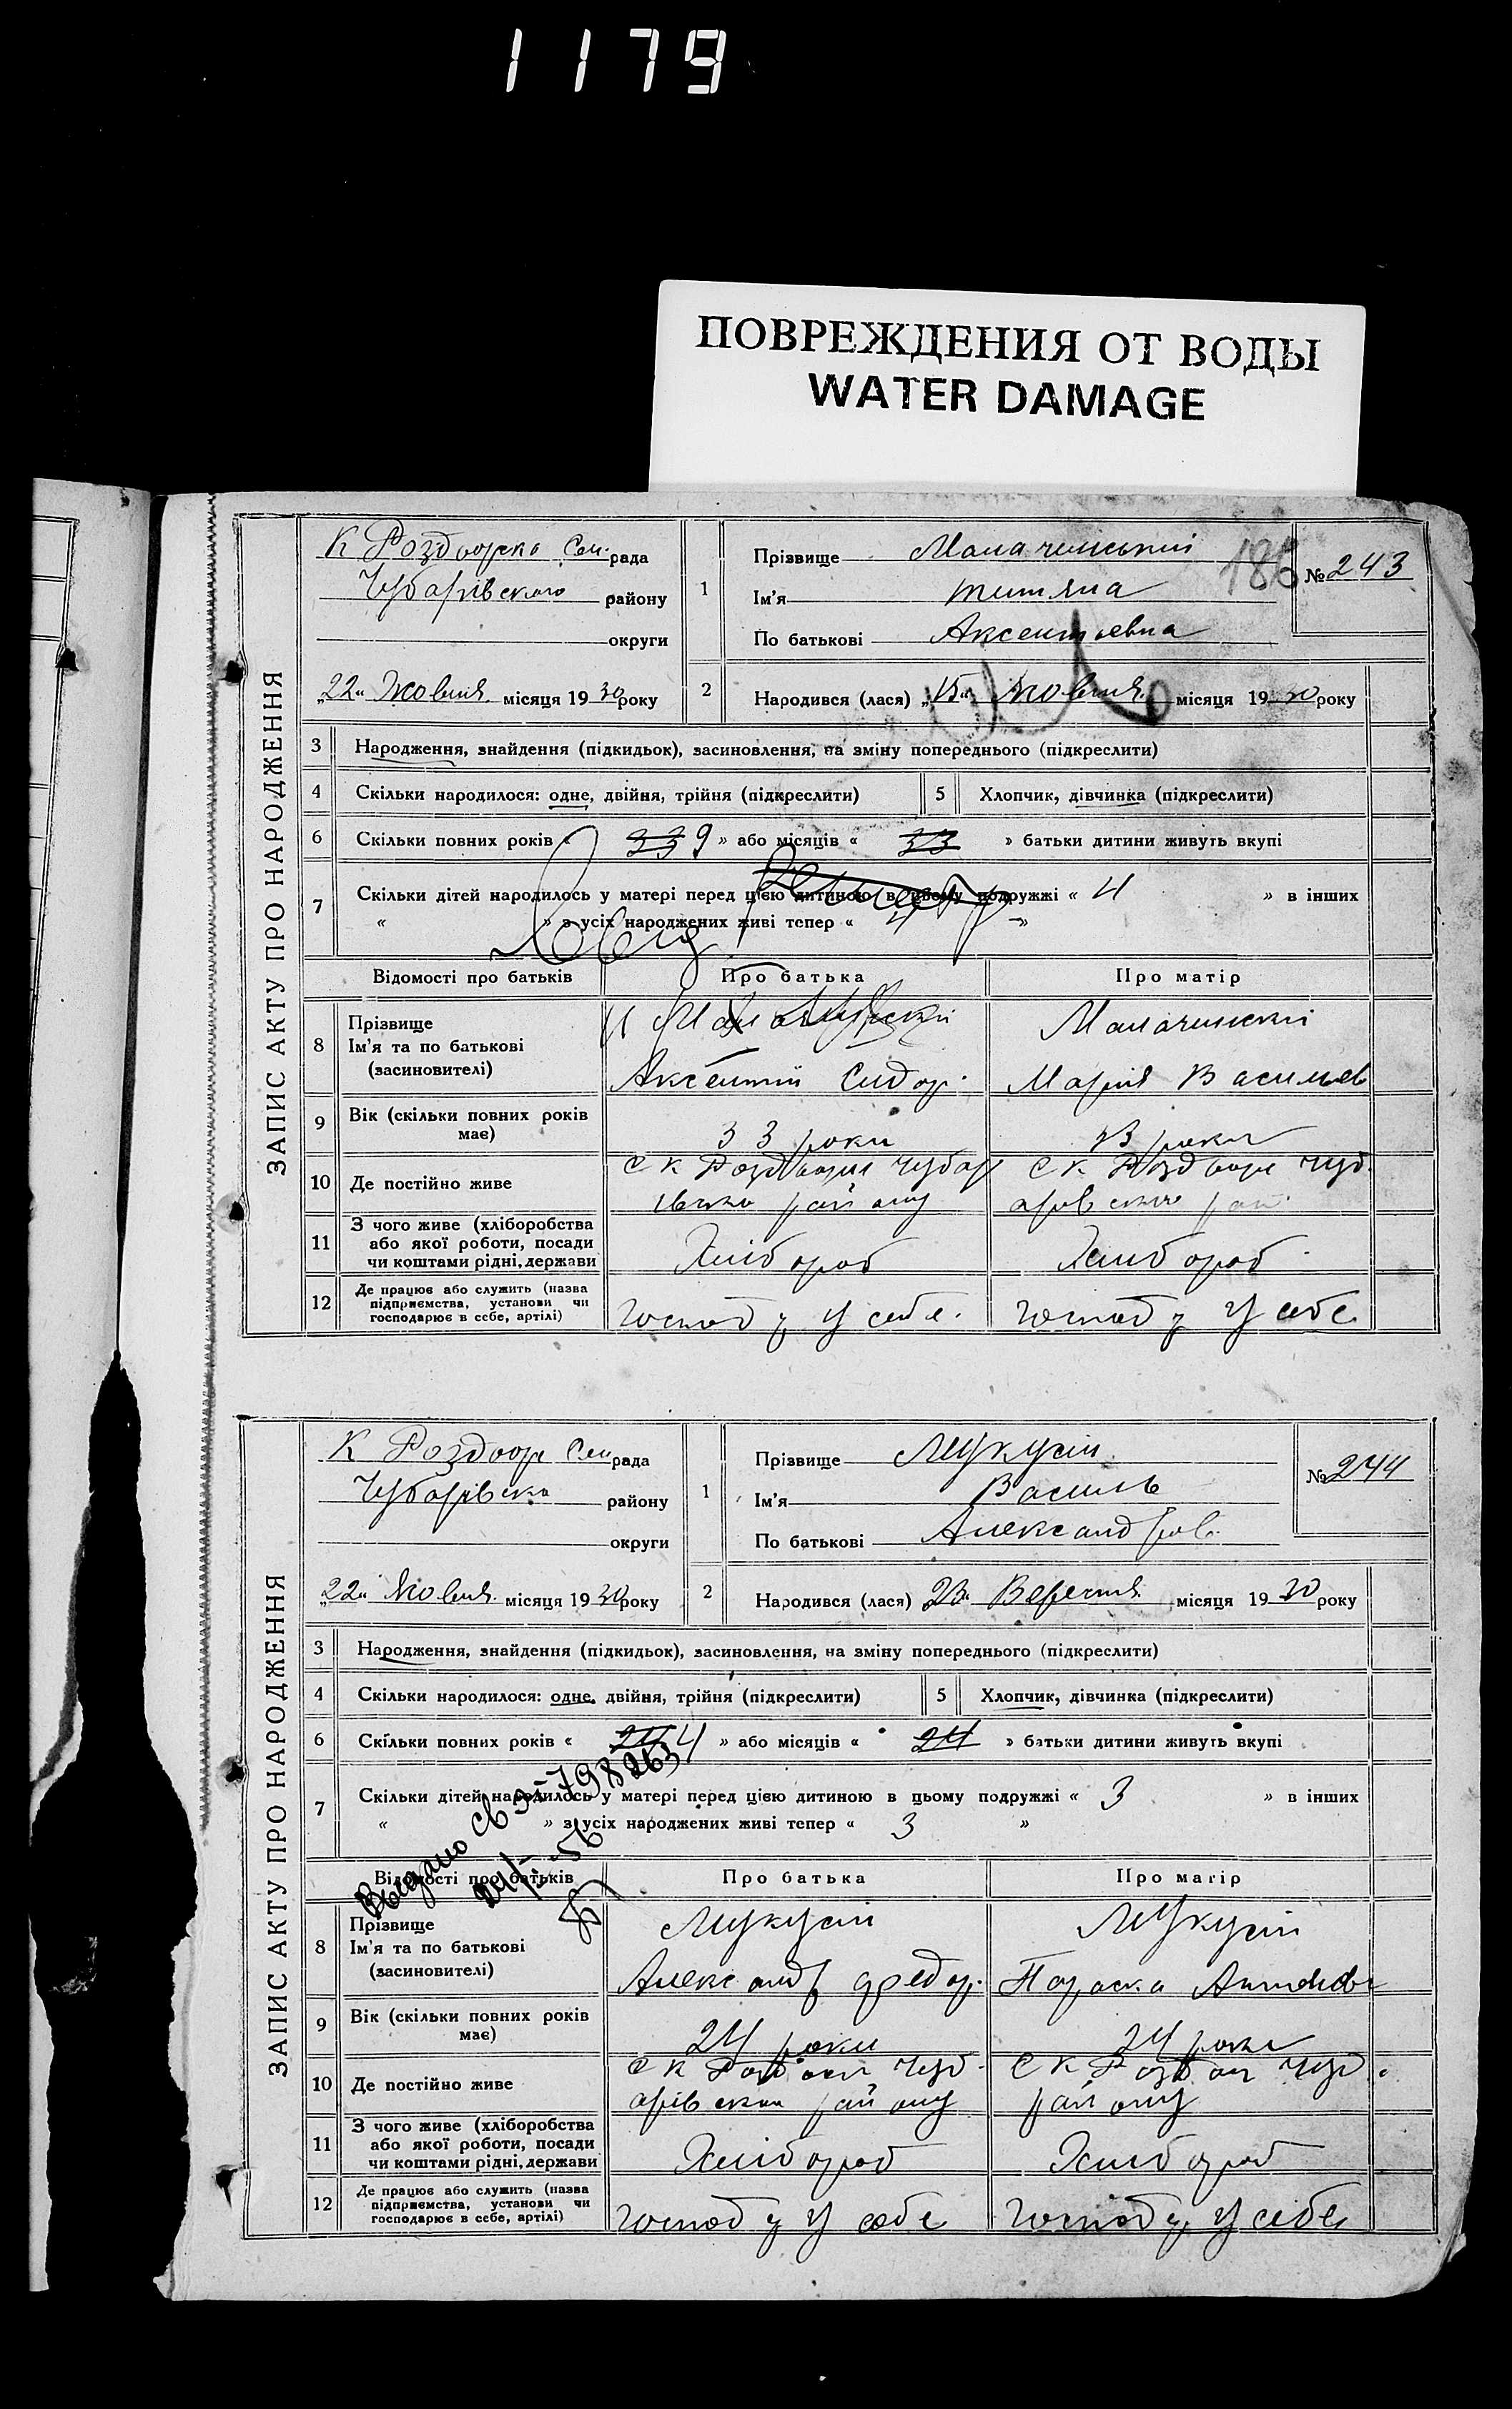 1179
ПОВРЕЖДЕНИЯ ОТ ВОДЫ
WATER DAMAGE
ЗАПИС АКТУ ПРО НАРОДЖЕННЯ
К Роздорска Сел. рада
Чубарівского району
округи
„22“ Жовтня місяця 1930 року
1 Прізвище
Ім'я
По батькові Аксентьевна
186
№ 243
2 Народився (лася) „15“ Жовтня місяця 1930 року
3 Народження, знайдення (підкидьок), засиновлення, на зміну попереднього (підкреслити)
4 Скільки народилося: одне, двійня, трійня (підкреслити) 5 Хлопчик, дівчинка (підкреслити)
6 Скільки повних років « 33 9 » або місяців « 33 » батьки дитини живуть вкупі
7 Скільки дітей народилось у матері перед цією дитиною в цьому подружжі « 4 » в інших
« » з усіх народжених живі тепер « 4 »
Відомості про батьків Про батька Про матір
8 Прізвище
Ім'я та по батькові Аксентий Сидор. Мария Васильев
(засновителі)
9 Вік (скільки повних років має) 33 роки 33 роки
10 Де постійно живе с К Роздори Чубар с К Роздори Чуб
івско району арівского рай
11 З чого живе (хліборобства
або якої роботи, посади Хлібороб Хлібороб
чи коштами рідні, держави
12 Де працює або служить (назва
підприємства, установи чи
господарює в себе, артілі) Господ у себе. Господ у себе
ЗАПИС АКТУ ПРО НАРОДЖЕННЯ
К Роздор Сел рада
Чубарівско району
округи
„22“ Жовтня місяця 1930 року
1 Прізвище
Ім'я Василь
По батькові Александров.
№ 244
2 Народився (лася) „23“ Вересня місяця 1930 року
3 Народження, знайдення (підкидьок), засиновлення, на зміну попереднього (підкреслити)
4 Скільки народилося: одне, двійня, трійня (підкреслити) 5 Хлопчик, дівчинка (підкреслити)
6 Скільки повних років « 24 4 » або місяців « 24 » батьки дитини живуть вкупі
7 Скільки дітей народилось у матері перед цією дитиною в цьому подружжі « 3 » в інших
« » з усіх народжених живі тепер « 3 »
Відомості про батьків Про батька Про матір
8 Прізвище
Ім'я та по батькові Александр Федор. Параска
(засновителі)
9 Вік (скільки повних років має) 24 роки 24 роки
10 Де постійно живе с К Роздори Чуб с К Роздори Чуб
арівскои району району
11 З чого живе (хліборобства
або якої роботи, посади Хлібороб Хлібороб
чи коштами рідні, держави
12 Де працює або служить (назва
підприємства, установи чи
господарює в себе, артілі) Господ у себе Господ у себе